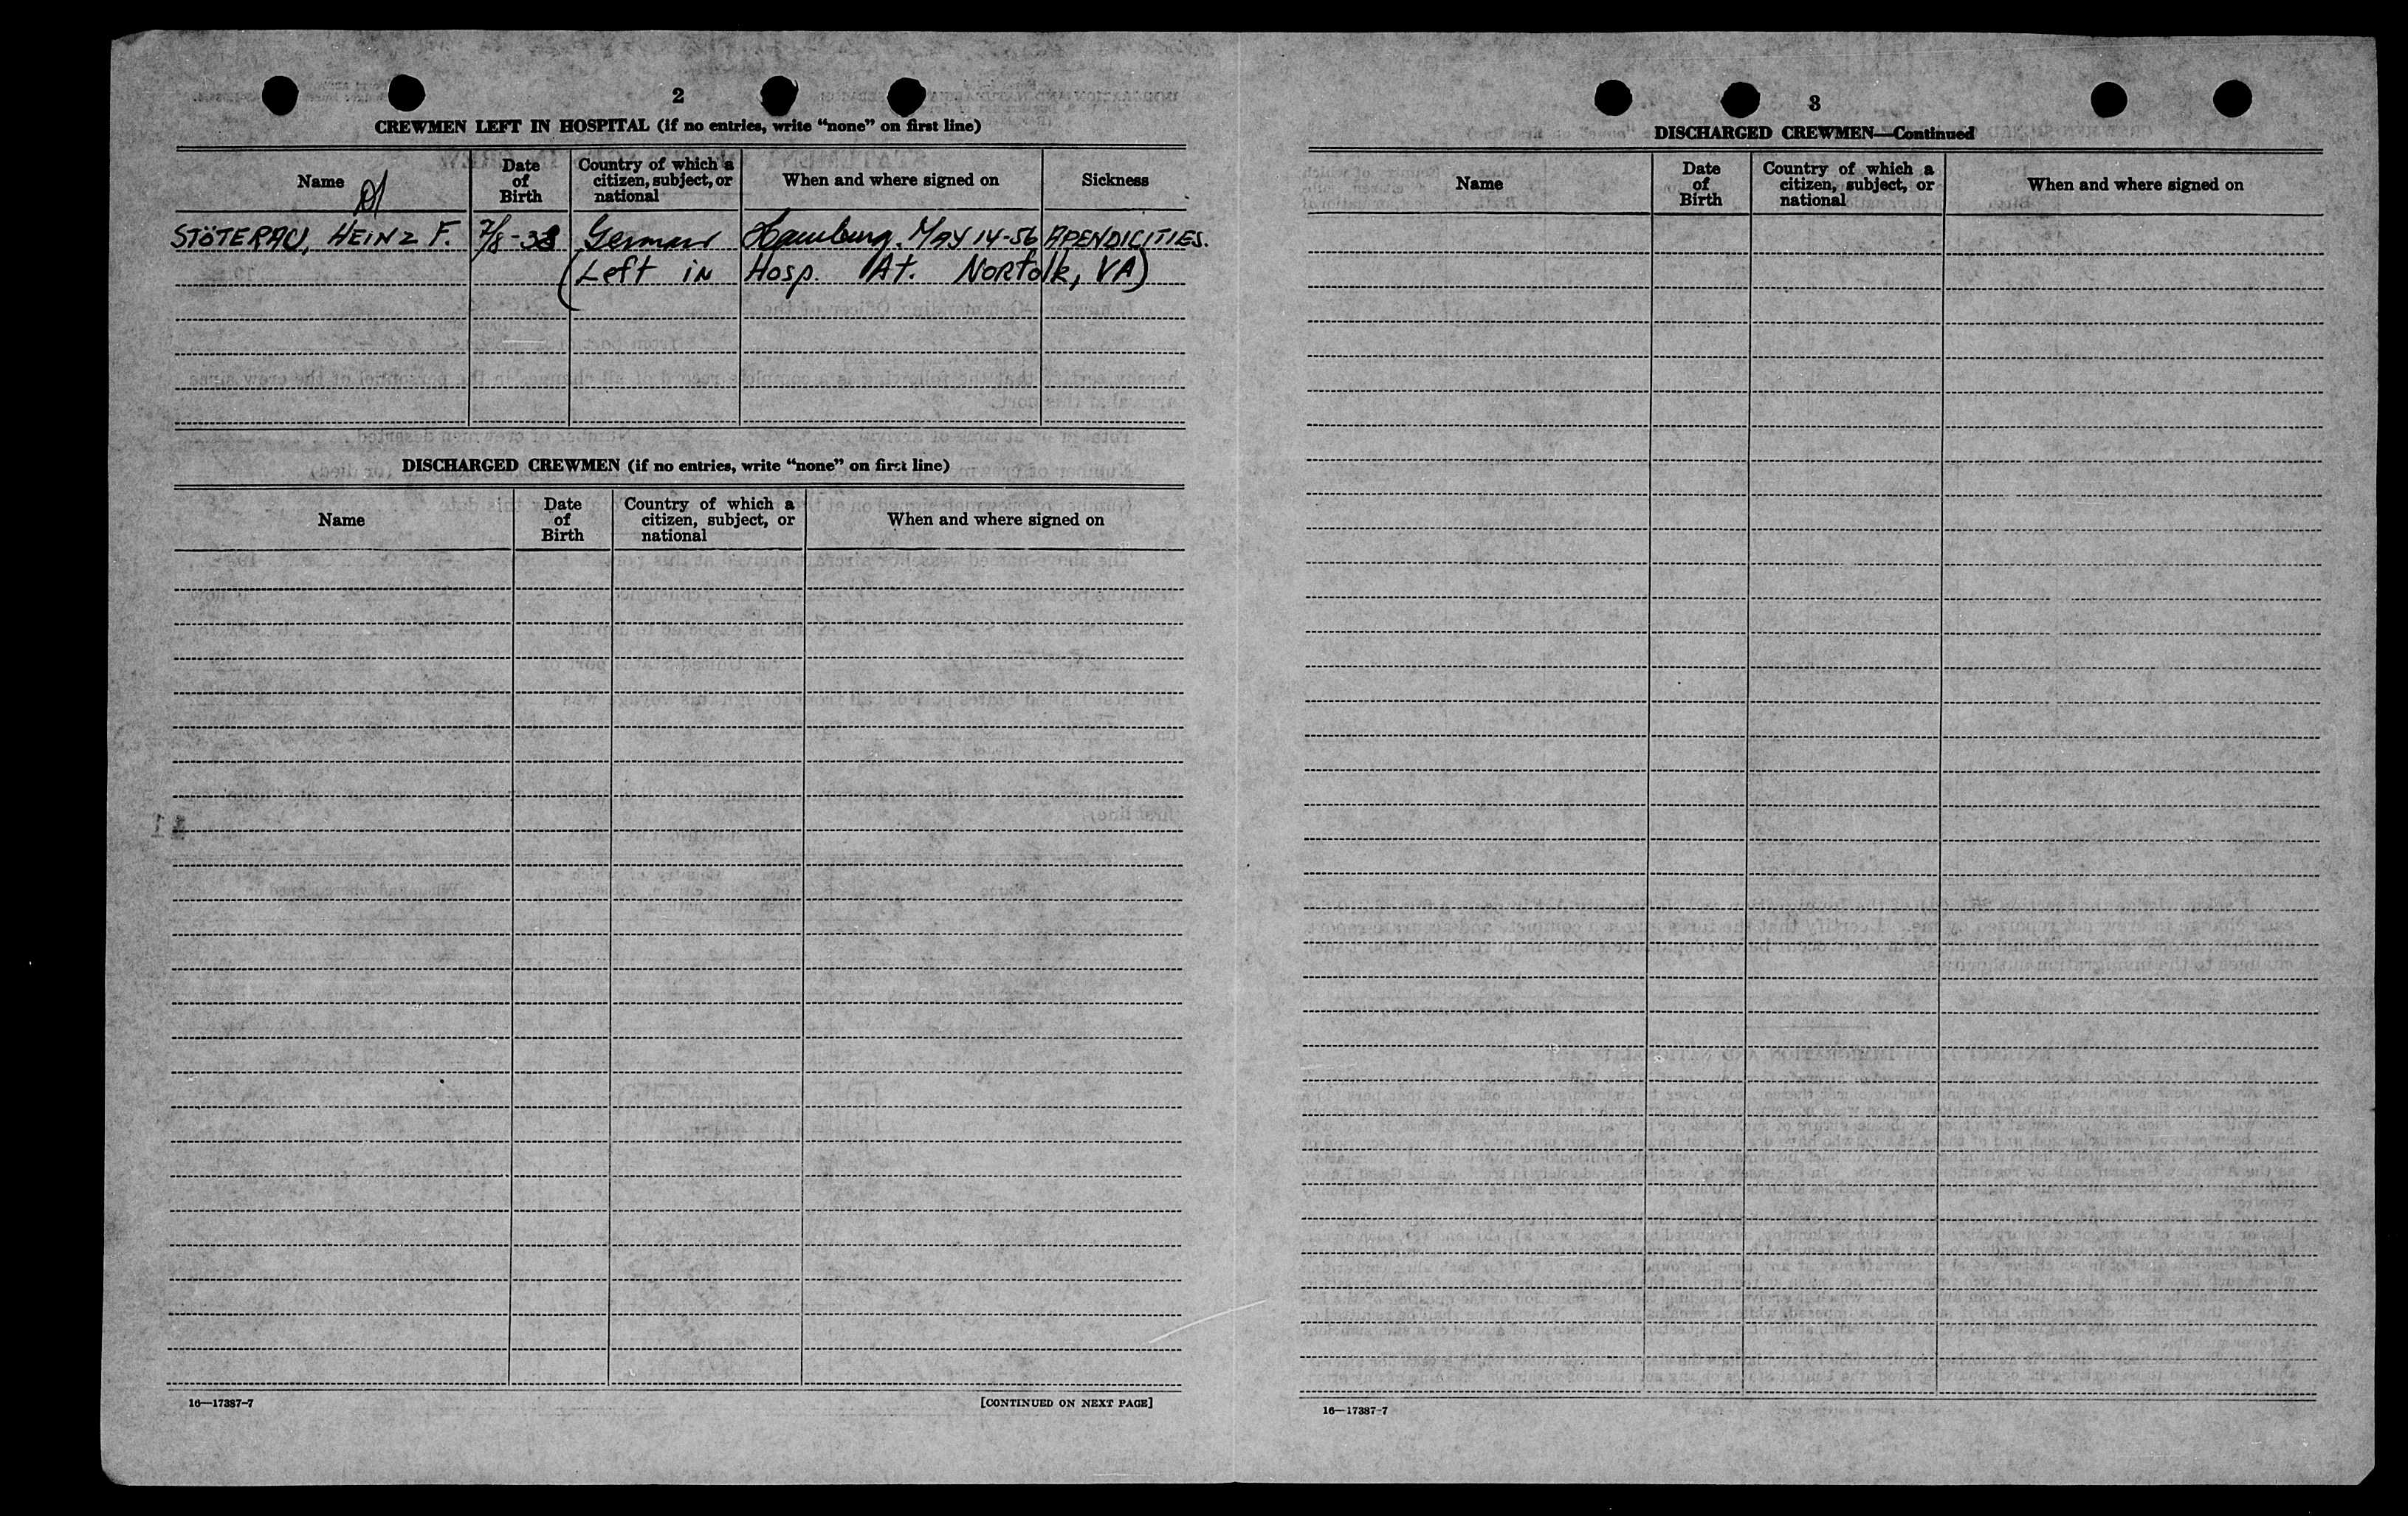 2
CREWMEN LEFT IN HOSPITAL (if no entries, write “none” on first line)
Name
Date of Birth
Country of which a citizen, subject, or national
When and where signed on
Sickness
STÖTERAU, HEINZ F. 7/8-38 German Hamburg. MAY 14-56 APENDICITIES.
(Left in Hosp. At. Norfolk, VA)
DISCHARGED CREWMEN (if no entries, write “none” on first line)
Name
Date of Birth
Country of which a citizen, subject, or national
When and where signed on
16—17387-7
[CONTINUED ON NEXT PAGE]
3
DISCHARGED CREWMEN—Continued
Name
Date of Birth
Country of which a citizen, subject, or national
When and where signed on
16—17387-7